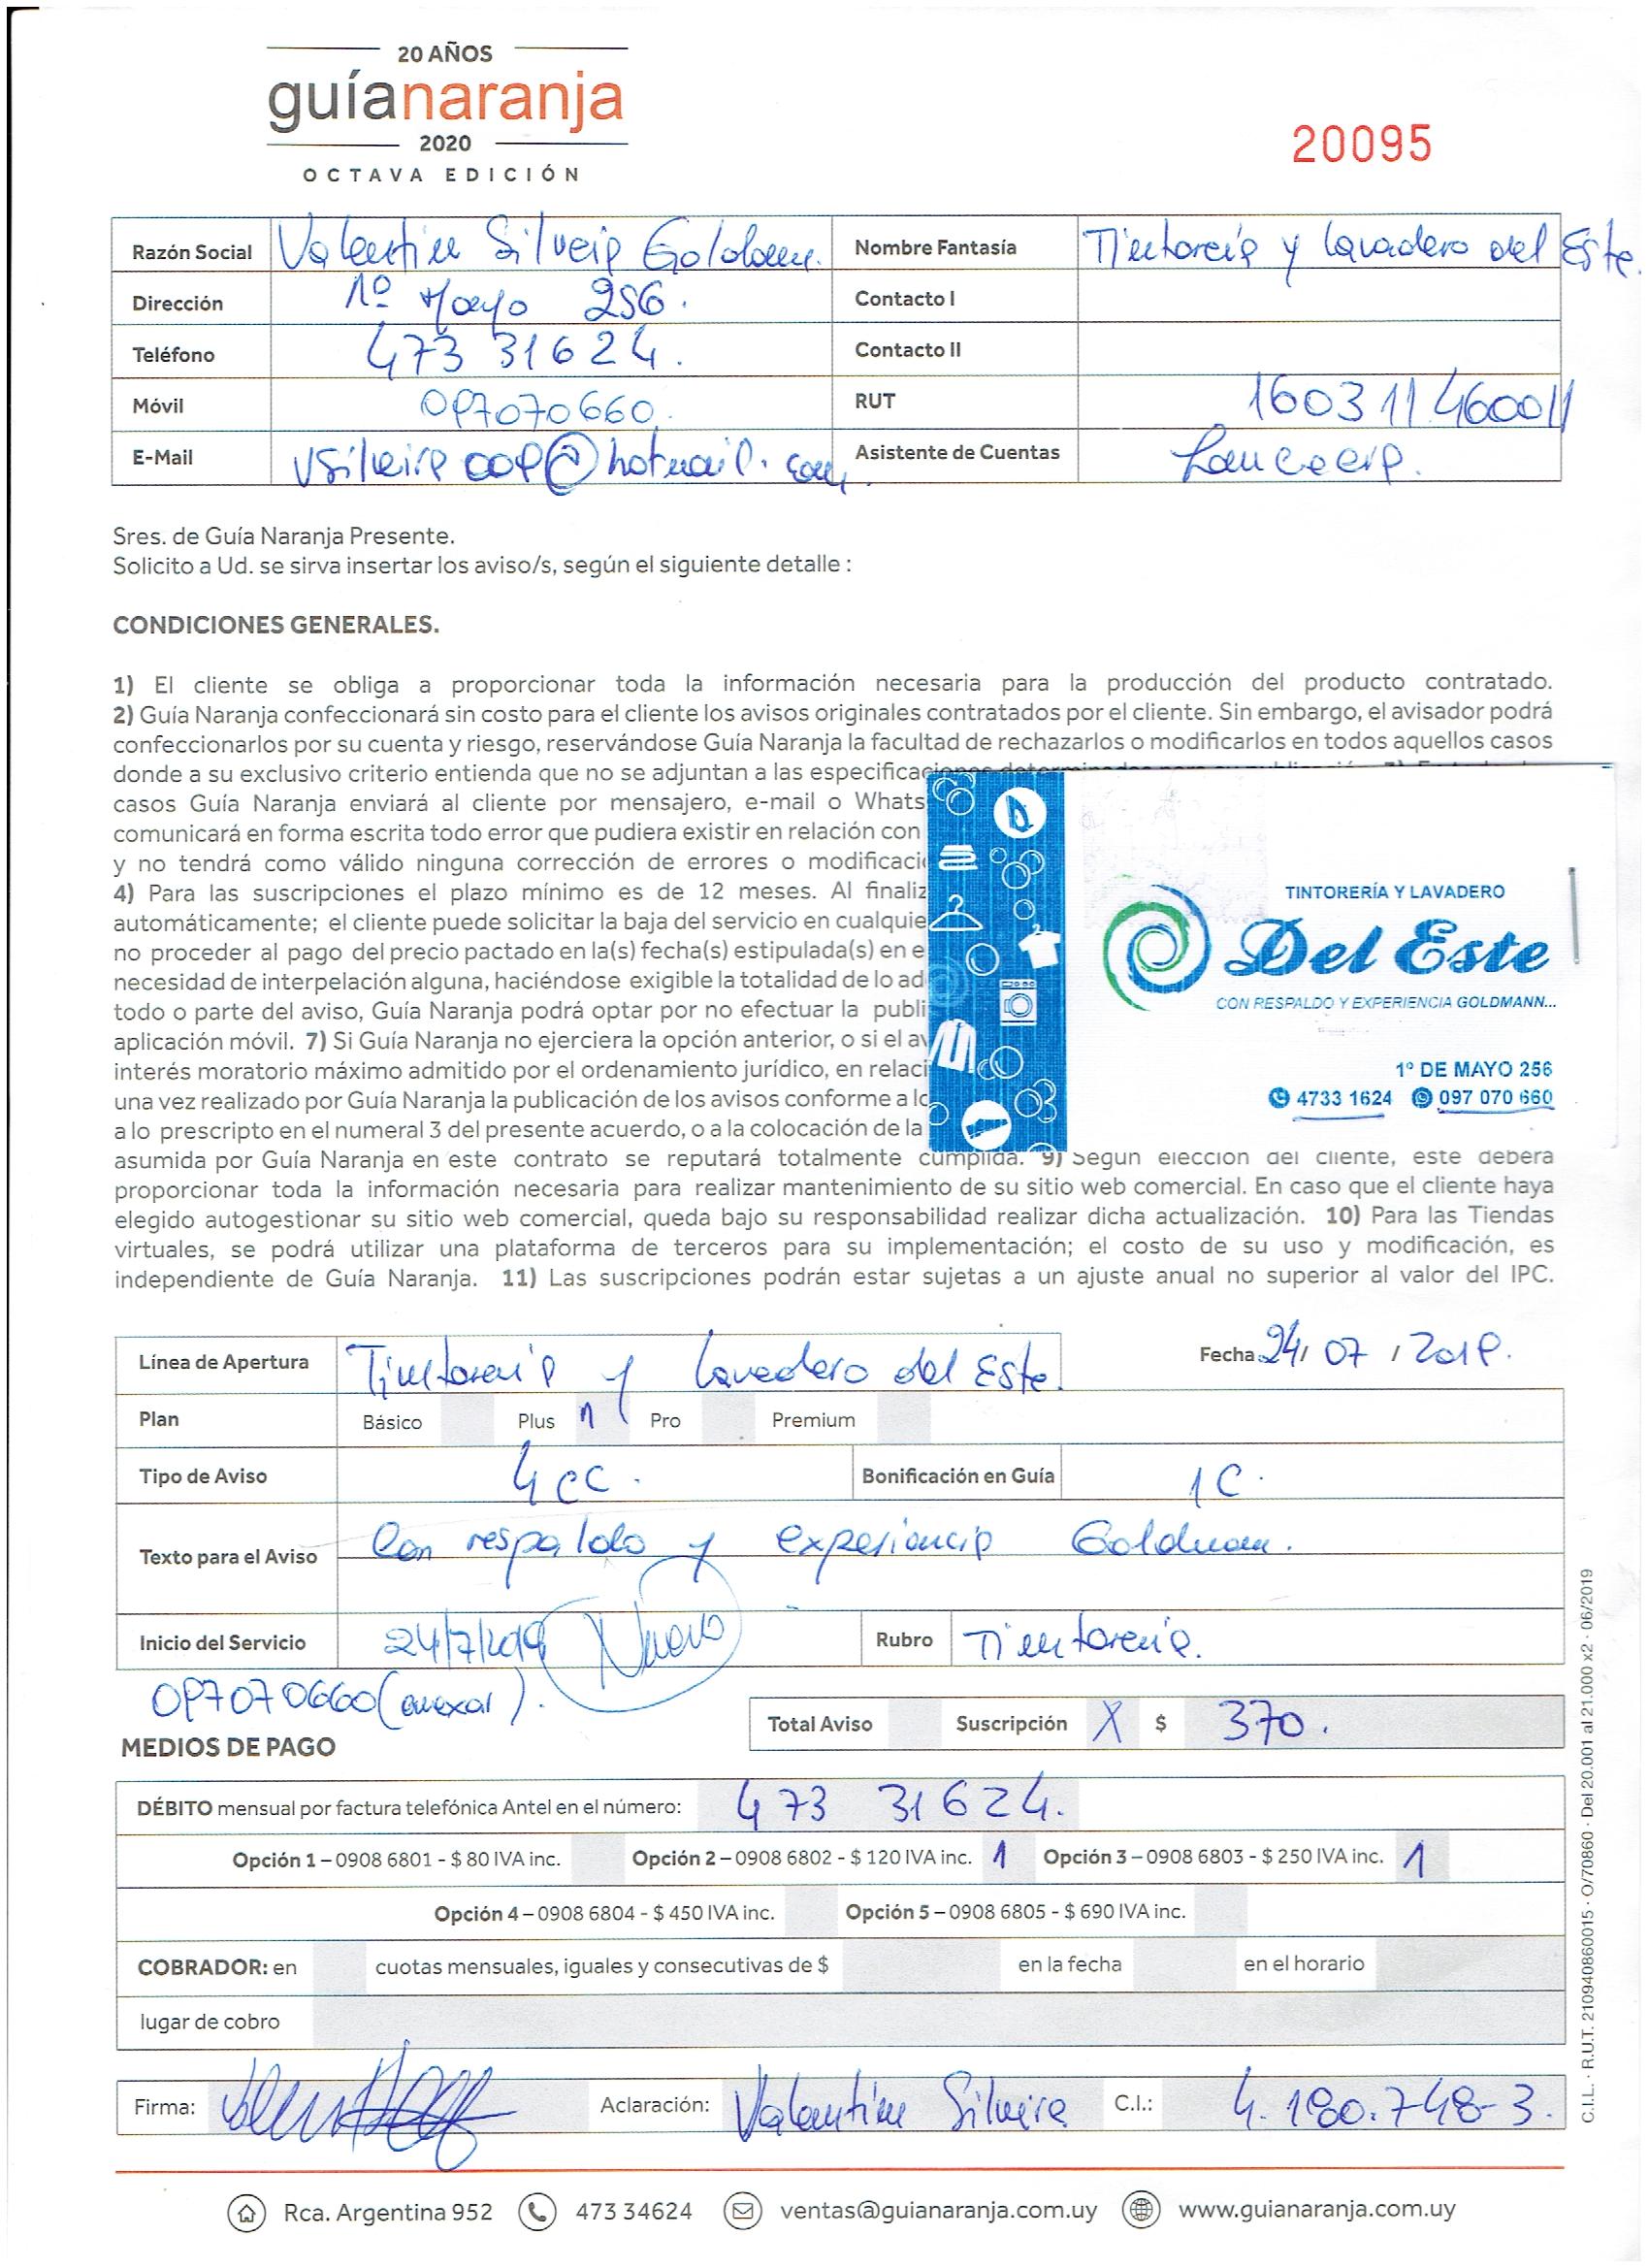 20 AÑOS
guíanaranja
2020
OCTAVA EDICIÓN
20095
Razón Social Valentin Silveira Goldman. Nombre Fantasía Tintoreria y Lavadero del Este.
Dirección 1º Mayo 256. Contacto I
Teléfono 473 31624. Contacto II
Móvil 097070660. RUT 160311460011
E-Mail @hotmail.com. Asistente de Cuentas
Sres. de Guía Naranja Presente.
Solicito a Ud. se sirva insertar los aviso/s, según el siguiente detalle :
CONDICIONES GENERALES.
1) El cliente se obliga a proporcionar toda la información necesaria para la producción del producto contratado.
2) Guía Naranja confeccionará sin costo para el cliente los avisos originales contratados por el cliente. Sin embargo, el avisador podrá
confeccionarlos por su cuenta y riesgo, reservándose Guía Naranja la facultad de rechazarlos o modificarlos en todos aquellos casos
donde a su exclusivo criterio entienda que no se adjuntan a las
casos Guía Naranja enviará al cliente por mensajero, e-mail o Whats
comunicará en forma escrita todo error que pudiera existir en relación con
y no tendrá como válido ninguna corrección de errores o modificaci
4) Para las suscripciones el plazo mínimo es de 12 meses. Al finaliz
automáticamente; el cliente puede solicitar la baja del servicio en cualquie
no proceder al pago del precio pactado en la(s) fecha(s) estipulada(s) en e
necesidad de interpelación alguna, haciéndose exigible la totalidad de lo ad
todo o parte del aviso, Guía Naranja podrá optar por no efectuar la publi
aplicación móvil. 7) Si Guía Naranja no ejerciera la opción anterior, o si el av
interés moratorio máximo admitido por el ordenamiento jurídico, en relaci
una vez realizado por Guía Naranja la publicación de los avisos conforme a lo
a lo prescripto en el numeral 3 del presente acuerdo, o a la colocación de la
asumida por Guía Naranja en este contrato se reputará totalmente cumplida. 9) Según elección del cliente, este deberá
proporcionar toda la información necesaria para realizar mantenimiento de su sitio web comercial. En caso que el cliente haya
elegido autogestionar su sitio web comercial, queda bajo su responsabilidad realizar dicha actualización. 10) Para las Tiendas
virtuales, se podrá utilizar una plataforma de terceros para su implementación; el costo de su uso y modificación, es
independiente de Guía Naranja. 11) Las suscripciones podrán estar sujetas a un ajuste anual no superior al valor del IPC.
TINTORERÍA Y LAVADERO
Del Este
CON RESPALDO Y EXPERIENCIA GOLDMANN...
1º DE MAYO 256
4733 1624 097 070 660
Línea de Apertura Tintoreria y Lavadero del Este. Fecha 24/ 07 / 2019.
Plan Básico Plus 1 Pro Premium
Tipo de Aviso 4cc. Bonificación en Guía 1C.
Texto para el Aviso Con respaldo y experiencia Goldman.
Inicio del Servicio 24/7/2019 Nuevo Rubro Tintoreria.
097070660 (anexar).
Total Aviso Suscripción X $ 370.
MEDIOS DE PAGO
DÉBITO mensual por factura telefónica Antel en el número: 473 31624.
Opción 1 – 0908 6801 - $ 80 IVA inc. Opción 2 – 0908 6802 - $ 120 IVA inc. 1 Opción 3 – 0908 6803 - $ 250 IVA inc. 1
Opción 4 – 0908 6804 - $ 450 IVA inc. Opción 5 – 0908 6805 - $ 690 IVA inc.
COBRADOR: en cuotas mensuales, iguales y consecutivas de $ en la fecha en el horario
lugar de cobro
Firma: Aclaración: Valentin Silveira C.I.: 4.180.748-3.
Rca. Argentina 952 473 34624 ventas@guianaranja.com.uy www.guianaranja.com.uy
C.I.L. · R.U.T. 210940860015 · O/70860 · Del 20.001 al 21.000 x2 · 06/2019